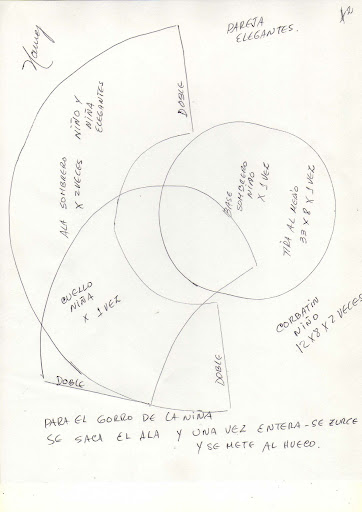 PAREJA
ELEGANTES.
X2
DOBLE
ALA SOMBRERO
X 2 VECES
NIÑO Y
NIÑA
ELEGANTES
BASE
SOMBRERO
NIÑO
X 1 VEZ
TIRA AL MEDIO
33 X 8 X 1 VEZ
CUELLO
NIÑA
X 1 VEZ
CORBATIN
NIÑO
12X8X2 VECES
DOBLE
DOBLE
PARA EL GORRO DE LA NIÑA
SE SACA EL ALA Y UNA VEZ ENTERA - SE ZURCE
Y SE METE AL HUECO.